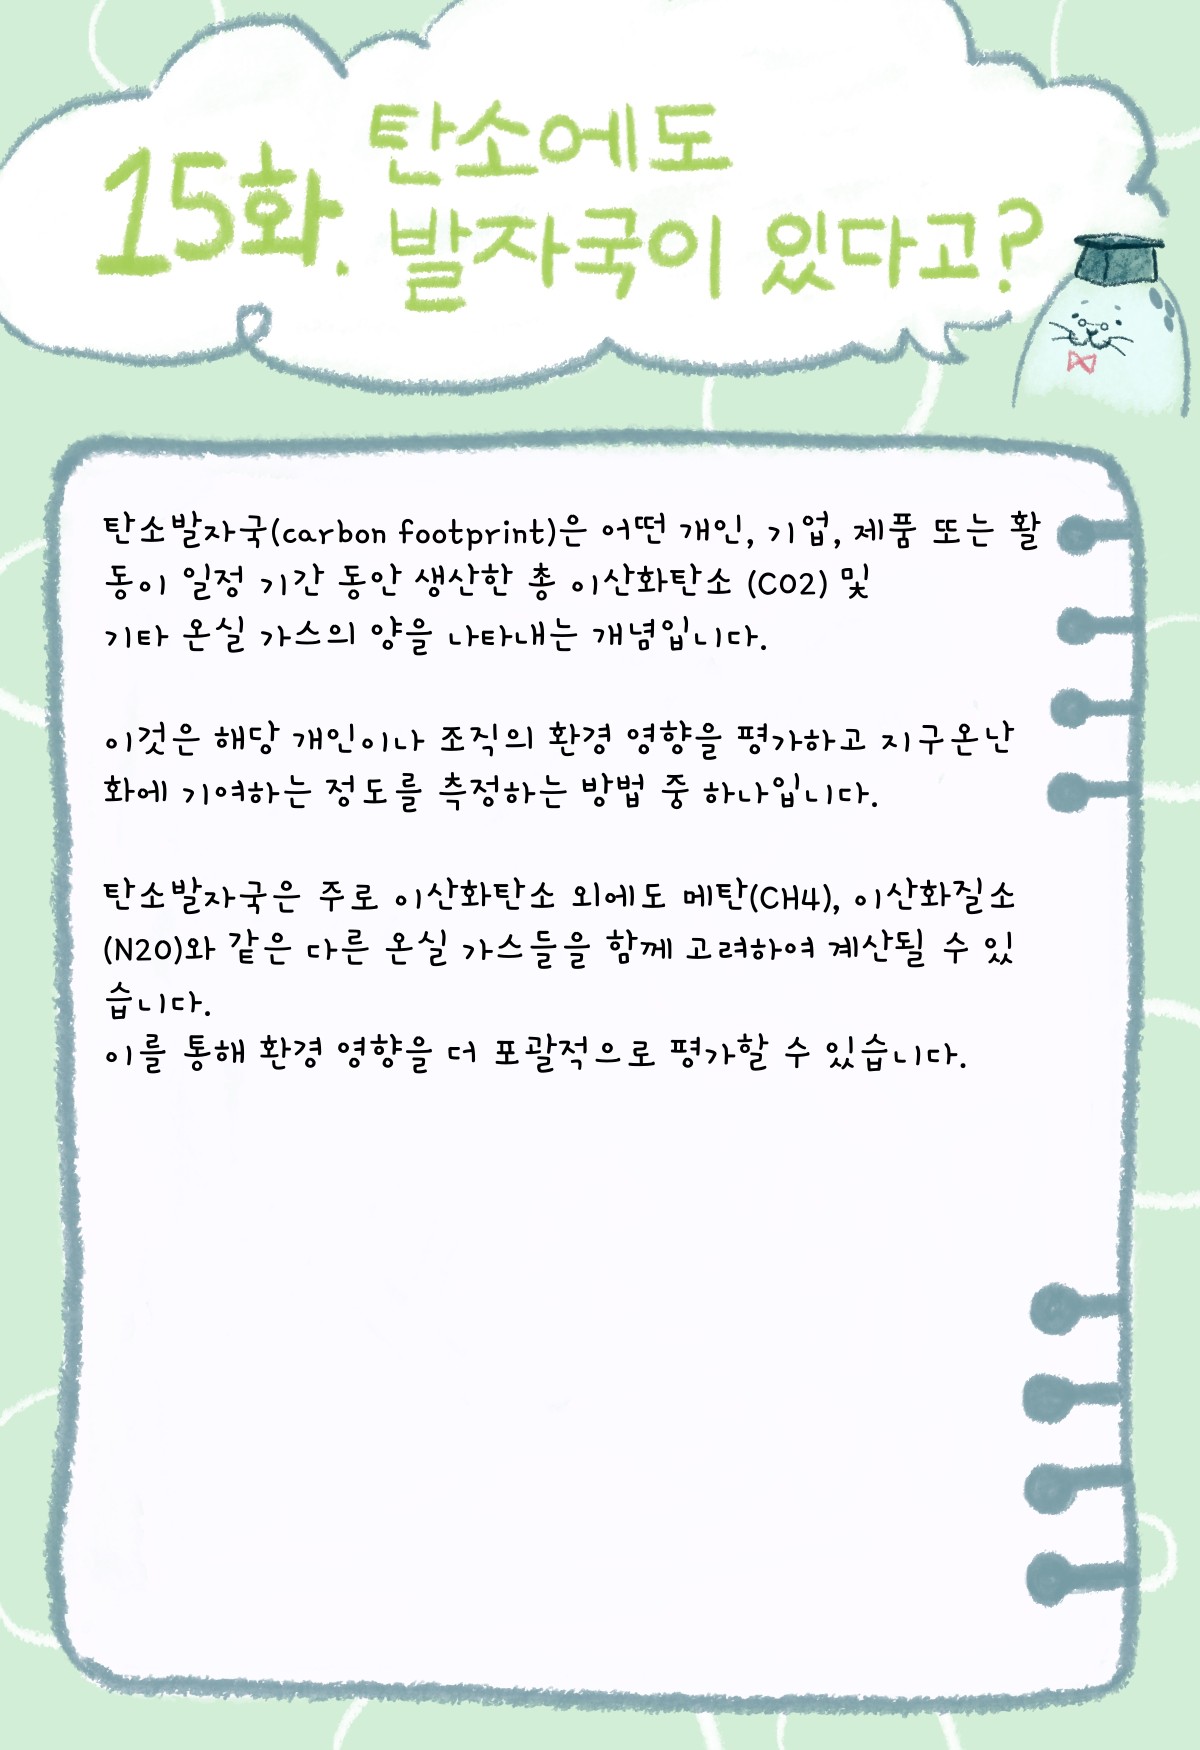 15화.
탄소에도
발자국이 있다고?
탄소발자국(carbon footprint)은 어떤 개인, 기업, 제품 또는 활
동이 일정 기간 동안 생산한 총 이산화탄소 (CO2) 및
기타 온실 가스의 양을 나타내는 개념입니다.
이것은 해당 개인이나 조직의 환경 영향을 평가하고 지구온난
화에 기여하는 정도를 측정하는 방법 중 하나입니다.
탄소발자국은 주로 이산화탄소 외에도 메탄(CH4), 이산화질소
(N2O)와 같은 다른 온실 가스들을 함께 고려하여 계산될 수 있
습니다.
이를 통해 환경 영향을 더 포괄적으로 평가할 수 있습니다.